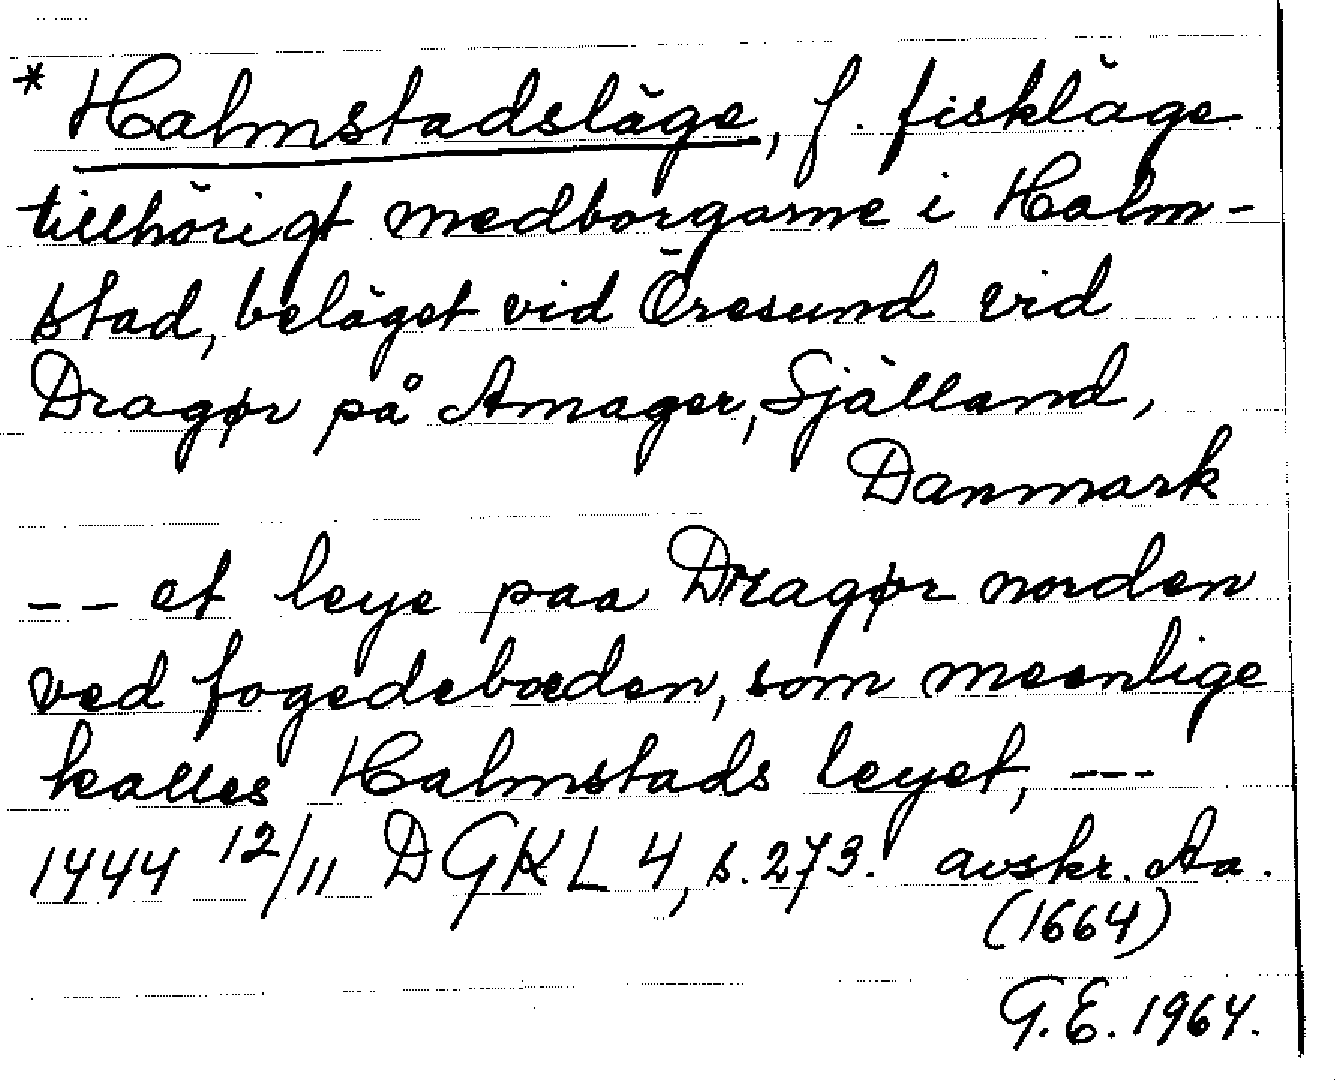 * Halmstadsläge, f. fiskläge
tillhörigt medborgarne i Halm-
stad, beläget vid Öresund vid
Dragør på Amager, Själland,
Danmark
-- et leye paa Dragør norden
ved fogedeboeden, som meenlige
kalles Halmstads leyet, ---
1444 12/11 DGKL 4, s. 273. avskr. Aa.
(1664)
G.E. 1964.